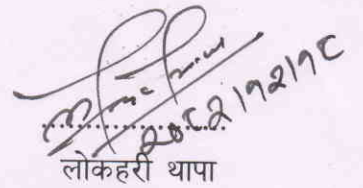 २०८२।१२।१८
लोकहरी थापा